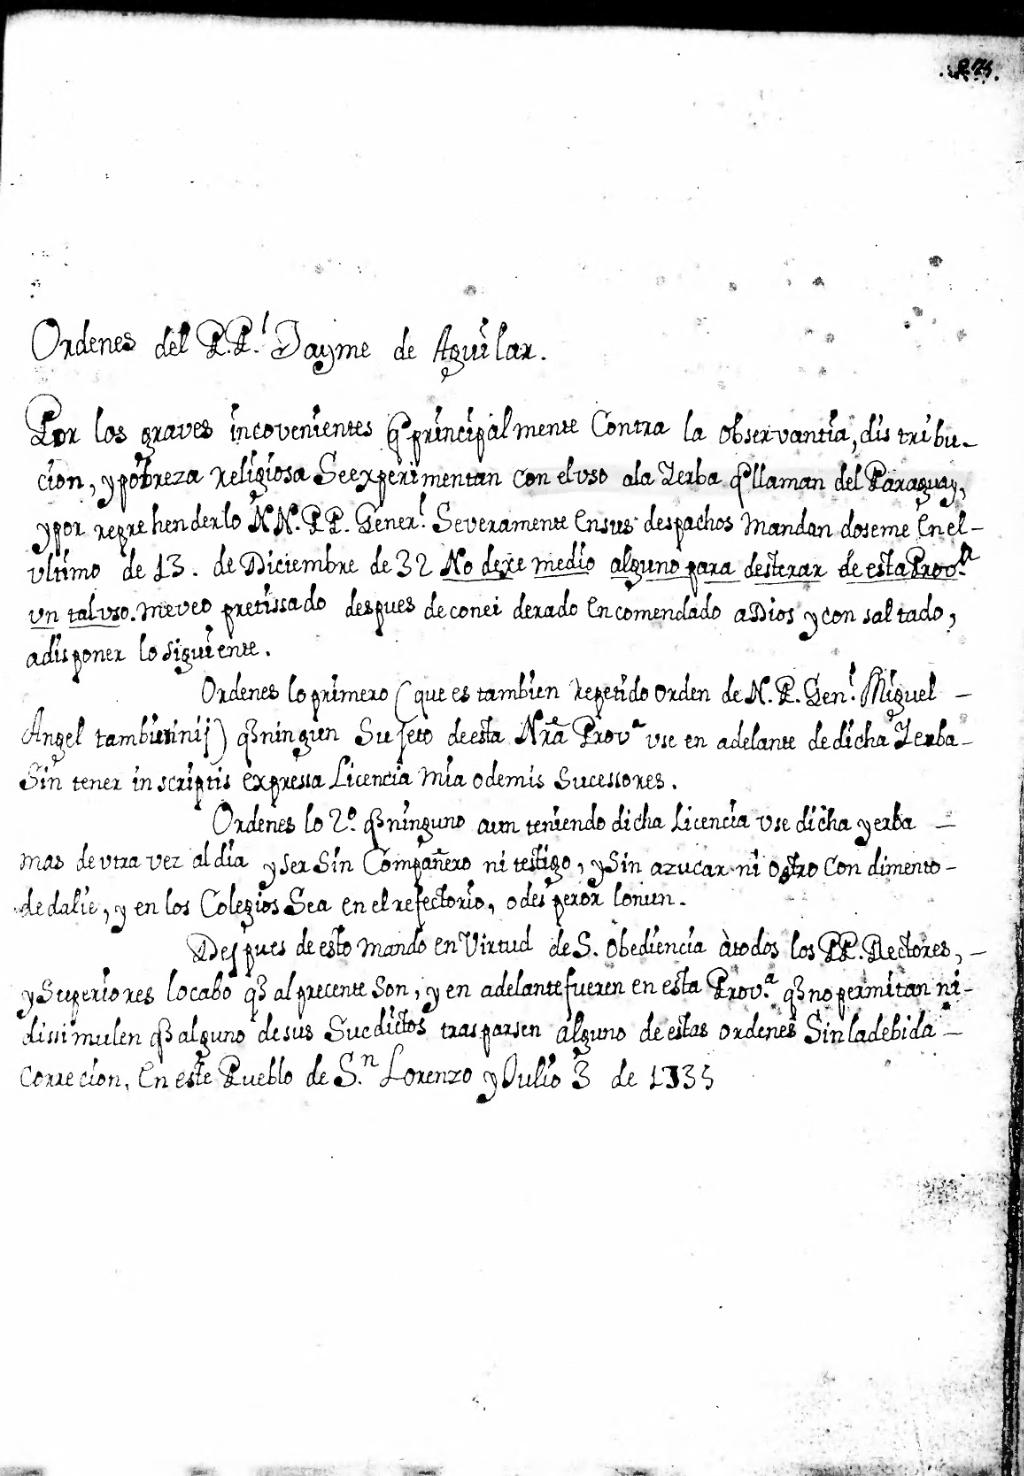 275.
Ordenes del P.P.l Jayme de Aguilar.
Por los graves incovenientes q̃ principalmente Contra la observantia, distribu-
cion, y pobreza religiosa Se experimentan con el uso a la Yerba q̃ llaman del Paraguay,
y por reprehenderlo N.N. P.P. Gener.l Severamente en sus despachos mandandoseme en el-
vltimo de 13. de Diciembre de 32 No dexe medio alguno para desterar de esta Prov.a
vn tal vso. me veo pretissado despues de conciderado encomendado a Dios y consaltado,
a disponer lo siguiente.
Ordenes lo primero (que es tambien repetido orden de N. P. Gen.l Miguel -
Angel tamburinij) q̃ ningun Sujeto de esta Nr̃a Prov.a vse en adelante de dicha Yerba-
Sin tener in scriptis expressa Licencia mia o de mis Sucessores.
Ordenes lo 2.o q̃ ninguno aun teniendo dicha Licencia vse dicha yerba -
mas de vtra vez al dia y ser Sin Compañero ni testigo, y Sin azucar ni ostro condimento-
de dalie, y en los Colegios Sea en el refectorio, o
Despues de esto mando en Virtud de S. obediencia à todos los PP. Rectores, -
y Superiores locabo q̃ al precente son, y en adelante fueren en esta Prov.a q̃ no permitan ni-
dissimulen q̃ alguno de sus Sucditos trasparsen alguno de estas ordenes Sin la debida -
Correcion. En este Pueblo de S.n Lorenzo y Julio 3 de 1735